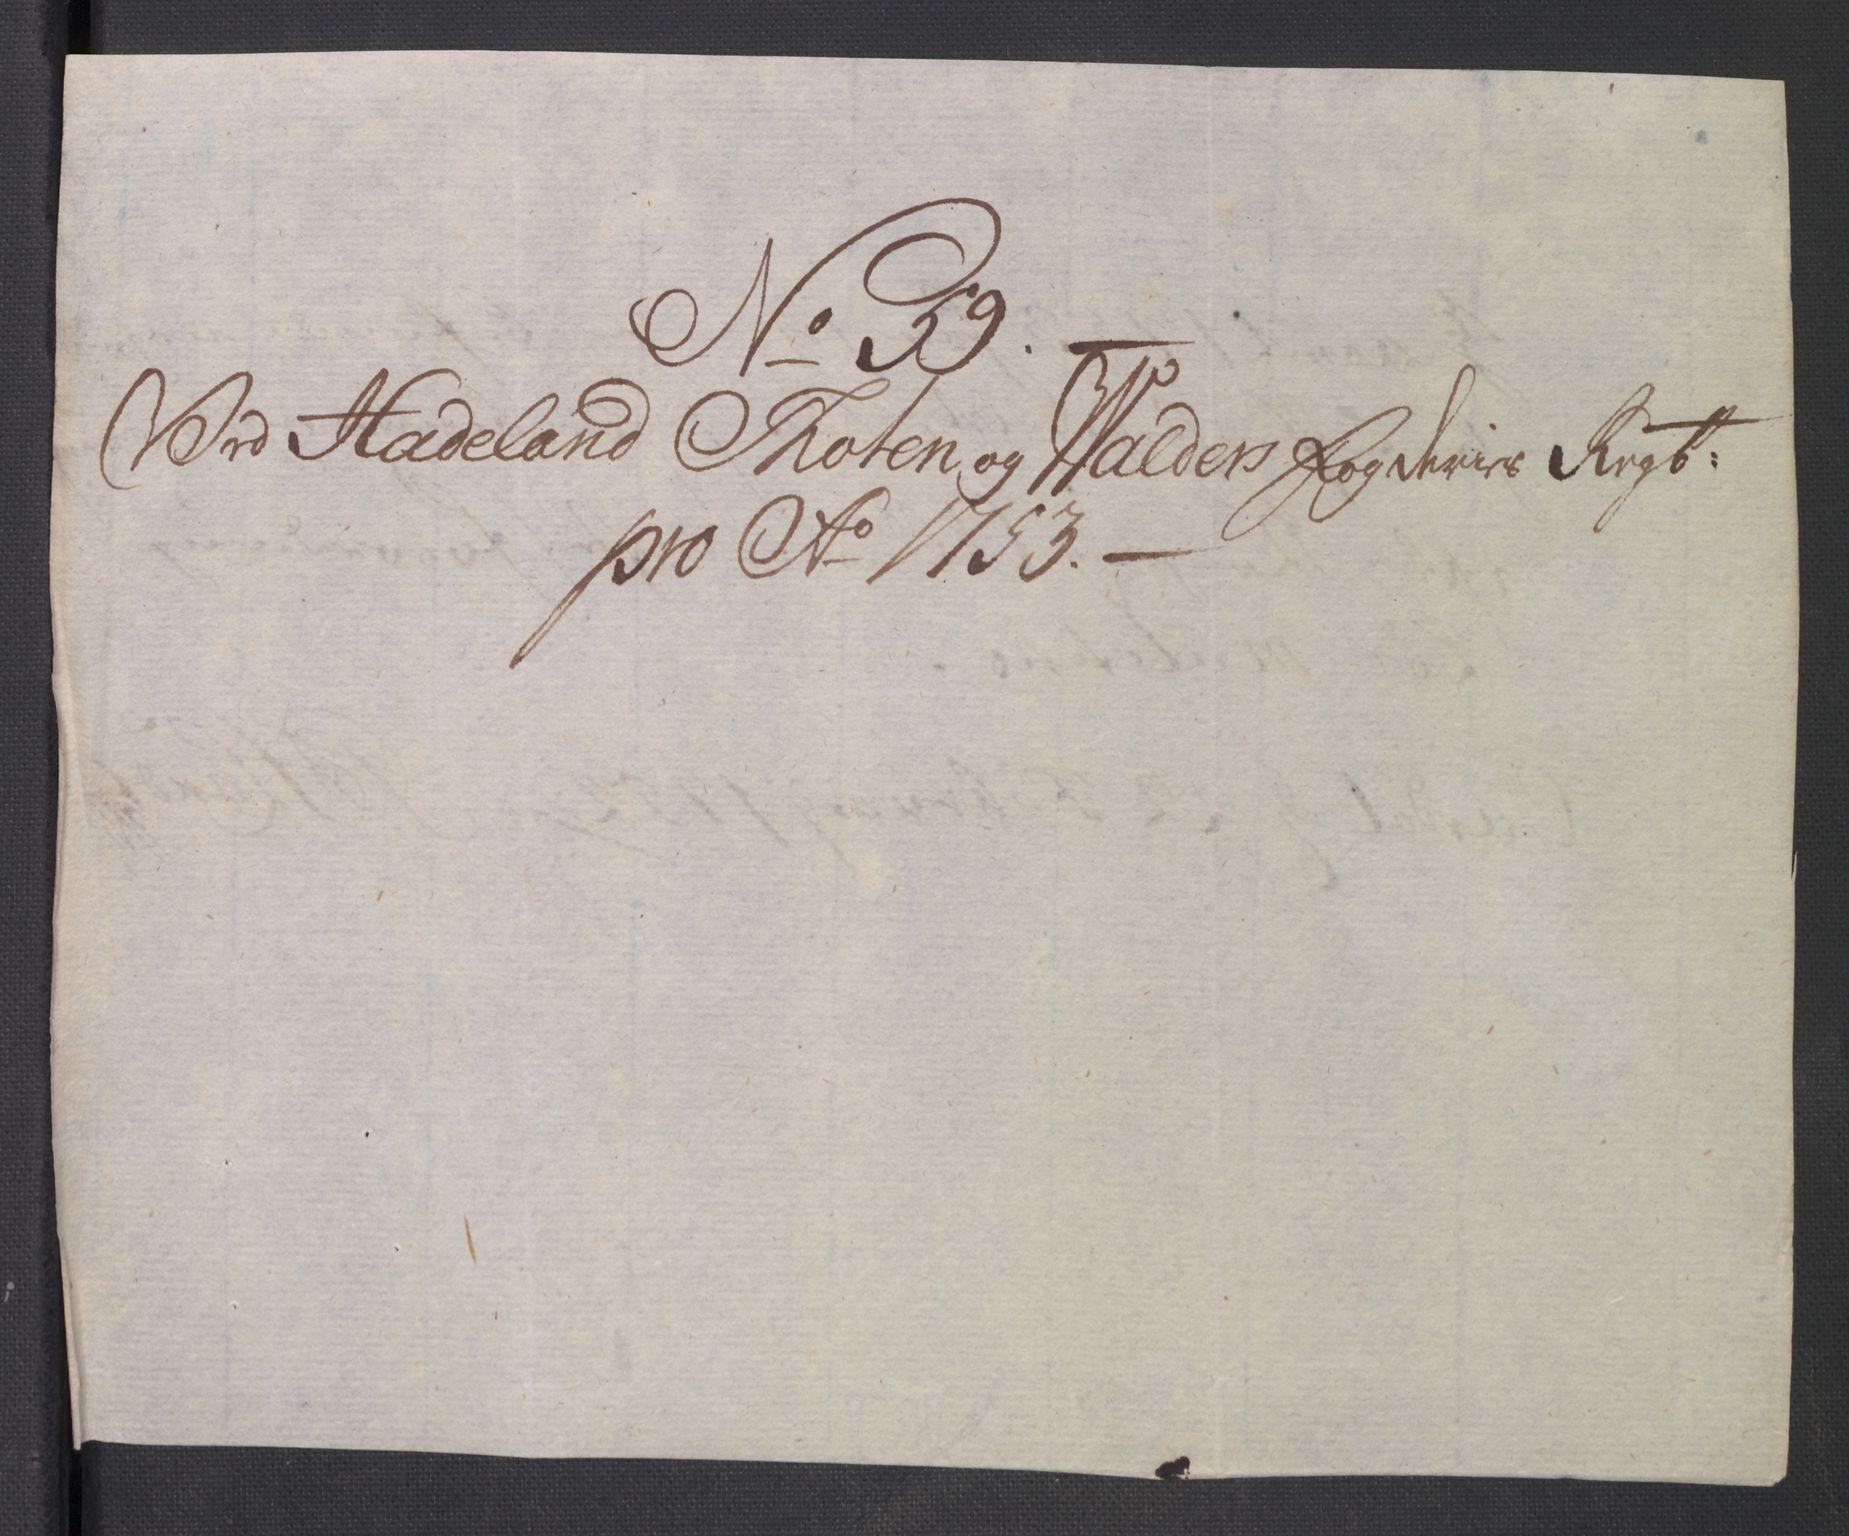 No 59.
Ved Hadeland Thoten og Walders Fogderies Regb:
pro Ao 1753.